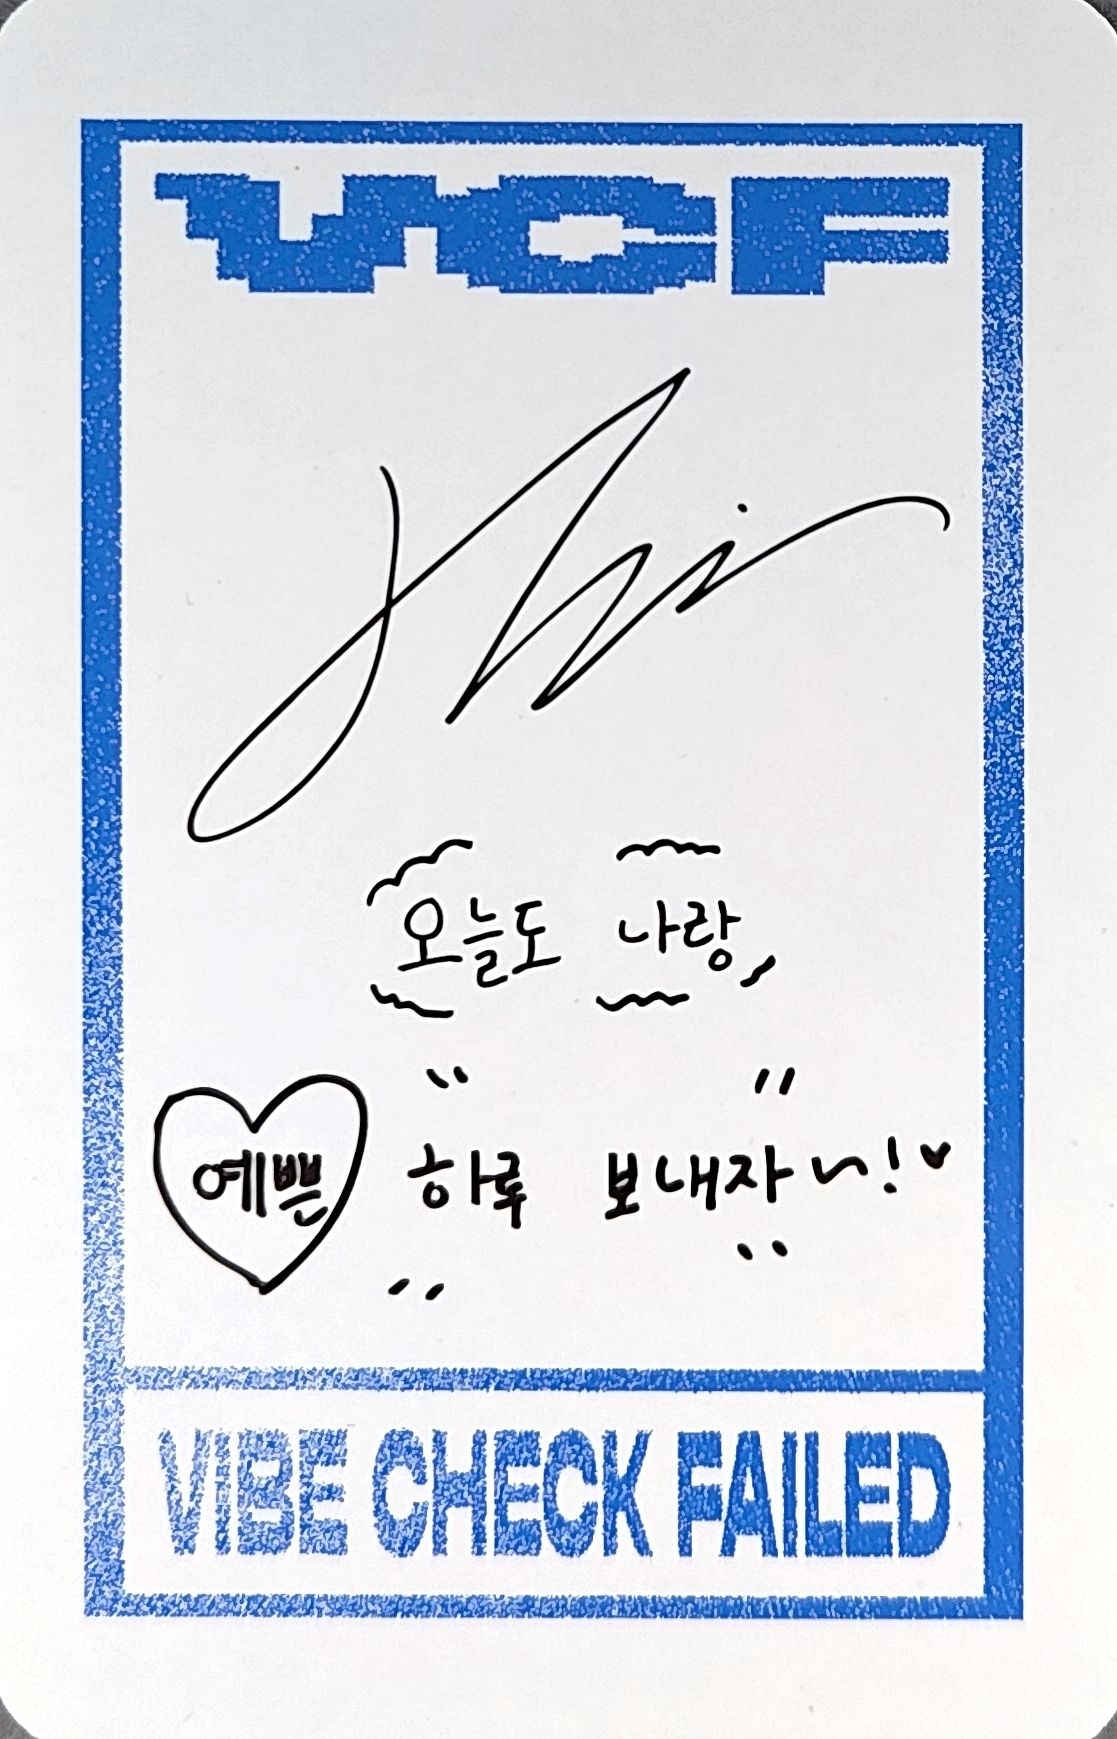 VCF
오늘도 나랑
예쁜 하루 보내자~!♥
VIBE CHECK FAILED